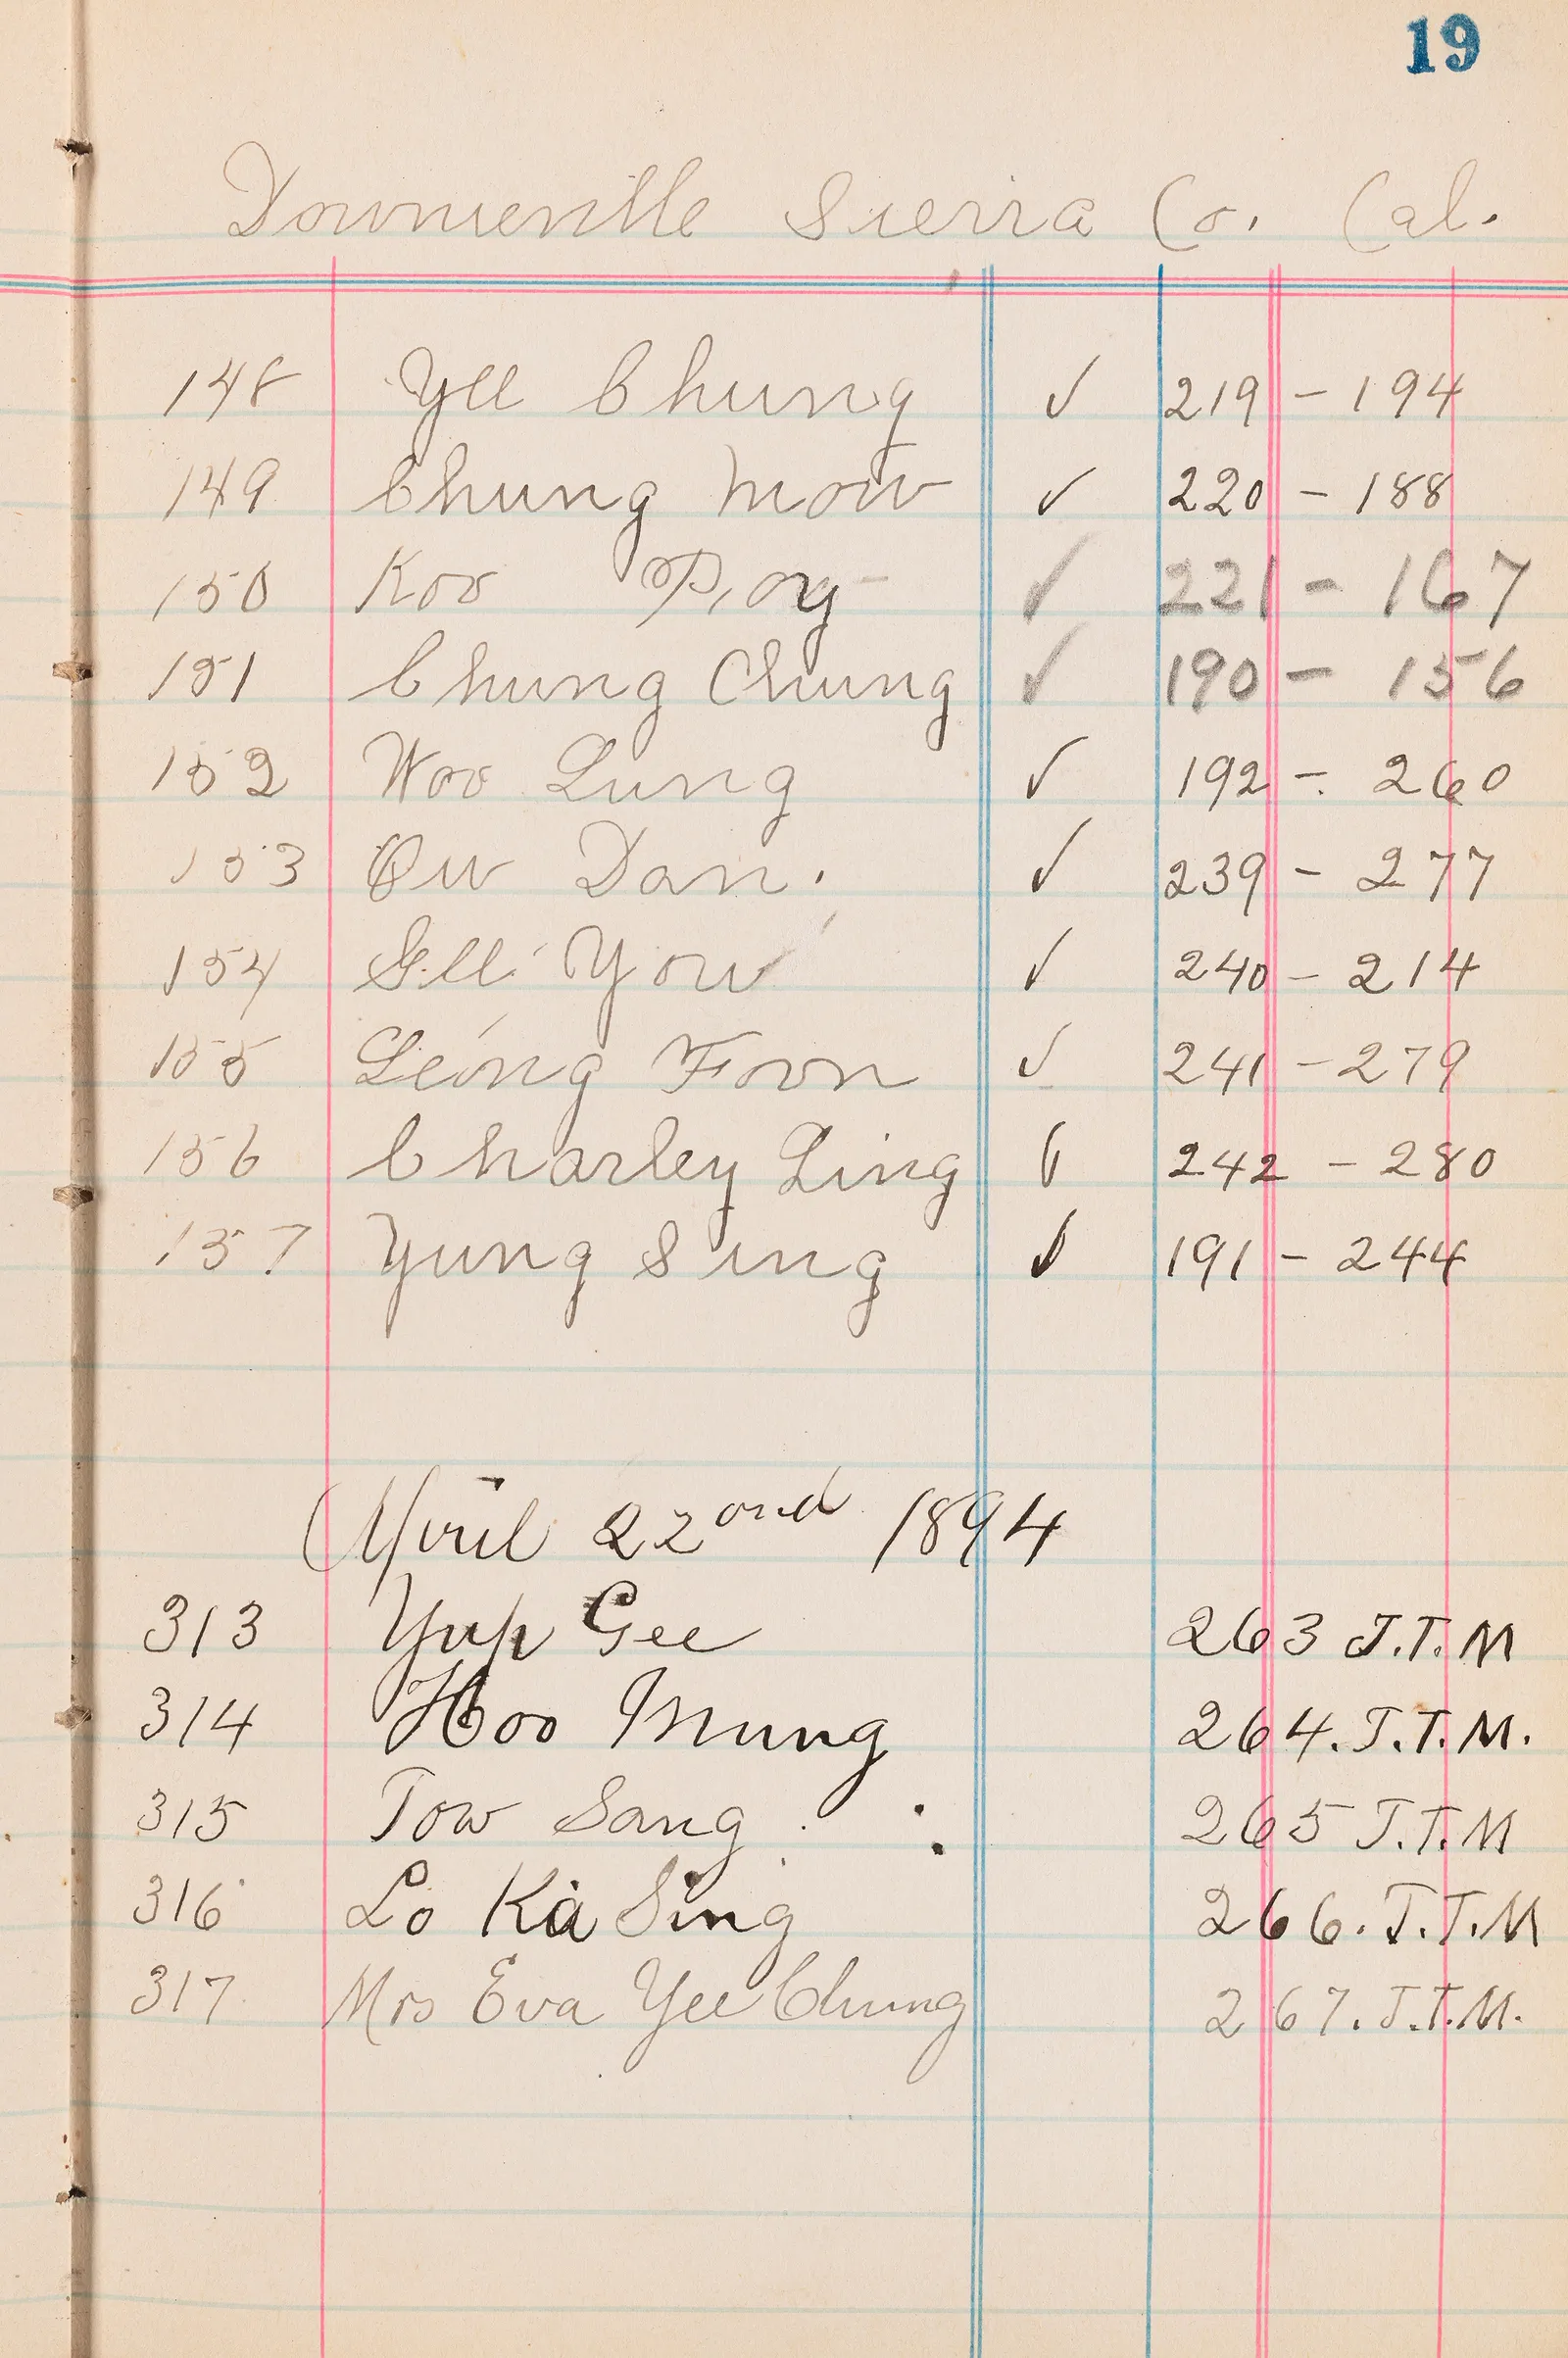 19
Downieville Sierra Co. Cal.
148 Yee Chung ✓ 219 - 194
149 Chung Mow ✓ 220 - 188
150 Koo Poy ✓ 221 - 167
151 Chung Chung ✓ 190 - 156
152 Woo Lung ✓ 192 - 260
153 Ow Dan. ✓ 239 - 277
154 See You ✓ 240 - 214
155 Leong Foon ✓ 241 - 279
156 Charley Ling ✓ 242 - 280
157 Yung Sing ✓ 191 - 244
April 22ond 1894
313 Yup Gee 263 J.T.M
314 Hoo Mung 264. J.T.M.
315 Tow Sang 265 J.T.M
316 Lo Ka Sing 266. J.T.M
317 Mrs Eva Yee Chung 267. J.T.M.